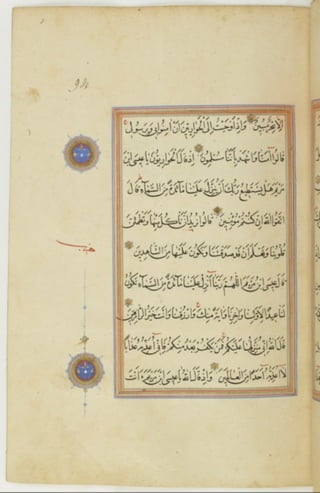 إلا سحر مبين وإذ أوحيت إلى الحواريين أن آمنوا بي وبرسولي
قالوا آمنا واشهد بأننا مسلمون إذ قال الحواريون يا عيسى ابن
مريم هل يستطيع ربك أن ينزل علينا مائدة من السماء قال
اتقوا الله إن كنتم مؤمنين قالوا نريد أن نأكل منها وتطمئن
قلوبنا ونعلم أن قد صدقتنا ونكون عليها من الشاهدين
قال عيسى ابن مريم اللهم ربنا أنزل علينا مائدة من السماء تكون
لنا عيدا لأولنا وآخرنا وآية منك وارزقنا وأنت خير الرازقين
قال الله إني منزلها عليكم فمن يكفر بعد منكم فإني أعذبه عذابا
لا أعذبه أحدا من العالمين وإذ قال الله يا عيسى ابن مريم أأنت
حزب